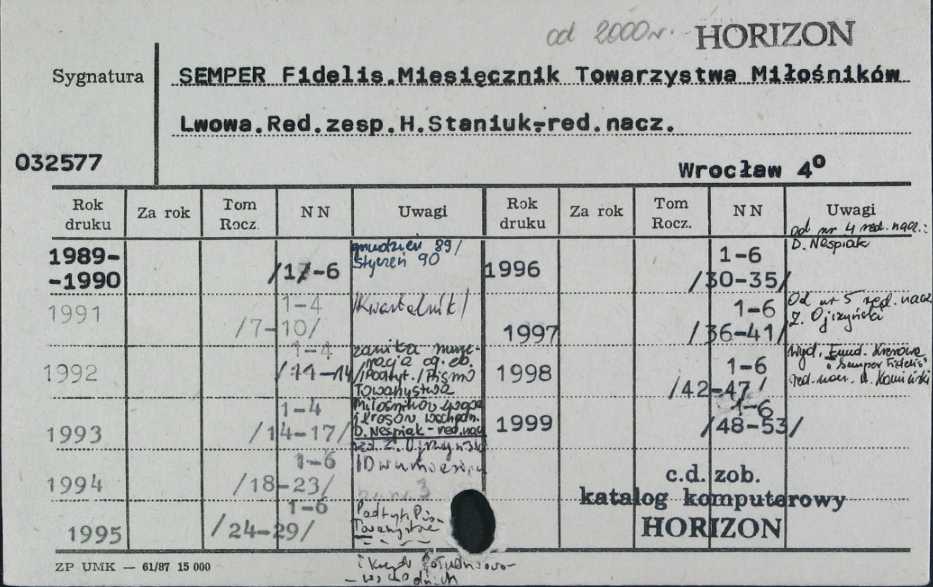 od 2000 r. HORIZON
Sygnatura
SEMPER Fidelis.Miesięcznik Towarzystwa Miłośników
Lwowa.Red.zesp.H.Staniuk-red.nacz.
032577
Wrocław 4°
Rok druku Za rok Tom Rocz. NN Uwagi Rok druku Za rok Tom Rocz. NN Uwagi
od nr 4 red. nacz.:
D. Nespiak
1989-
-1990
/17-6
grudzień 89/
styczeń 90
1996
1-6
/30-35/
1991
1-4
/7-10/
/Kwartalnik/
1997
1-6
/36-41/
Od nr 5 red. nacz
Z. Ojrzyński
1992
1-4
/11-14/
Towarzystwa
1998
1-6
/42-47/
Wyd. Fund. Kresowa
"Semper Fidelis"
red. nacz. A. Kamiński
1993
1-4
/14-17/
Miłośników Lwowa
D. Nespiak - red. nacz
1999
1-6
/48-53/
1994
1-6
/18-23/
c.d. zob.
katalog komputerowy
HORIZON
1995
1-6
/24-29/
Podtyt. Pismo
Towarzystwa
i Kresów Południowo-
-wschodnich
ZP UMK — 61/87 15 000